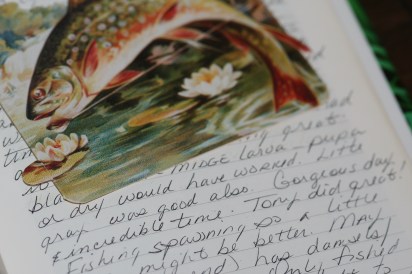 had
tim
great.
bla MIDGE larva - pupa
or dry would have worked. Little
gray was good also. Gorgeous day
& incredible time. Tony did great!
Fishing spawning so a little
might be better. May
end) has damsel/
Only fished
to